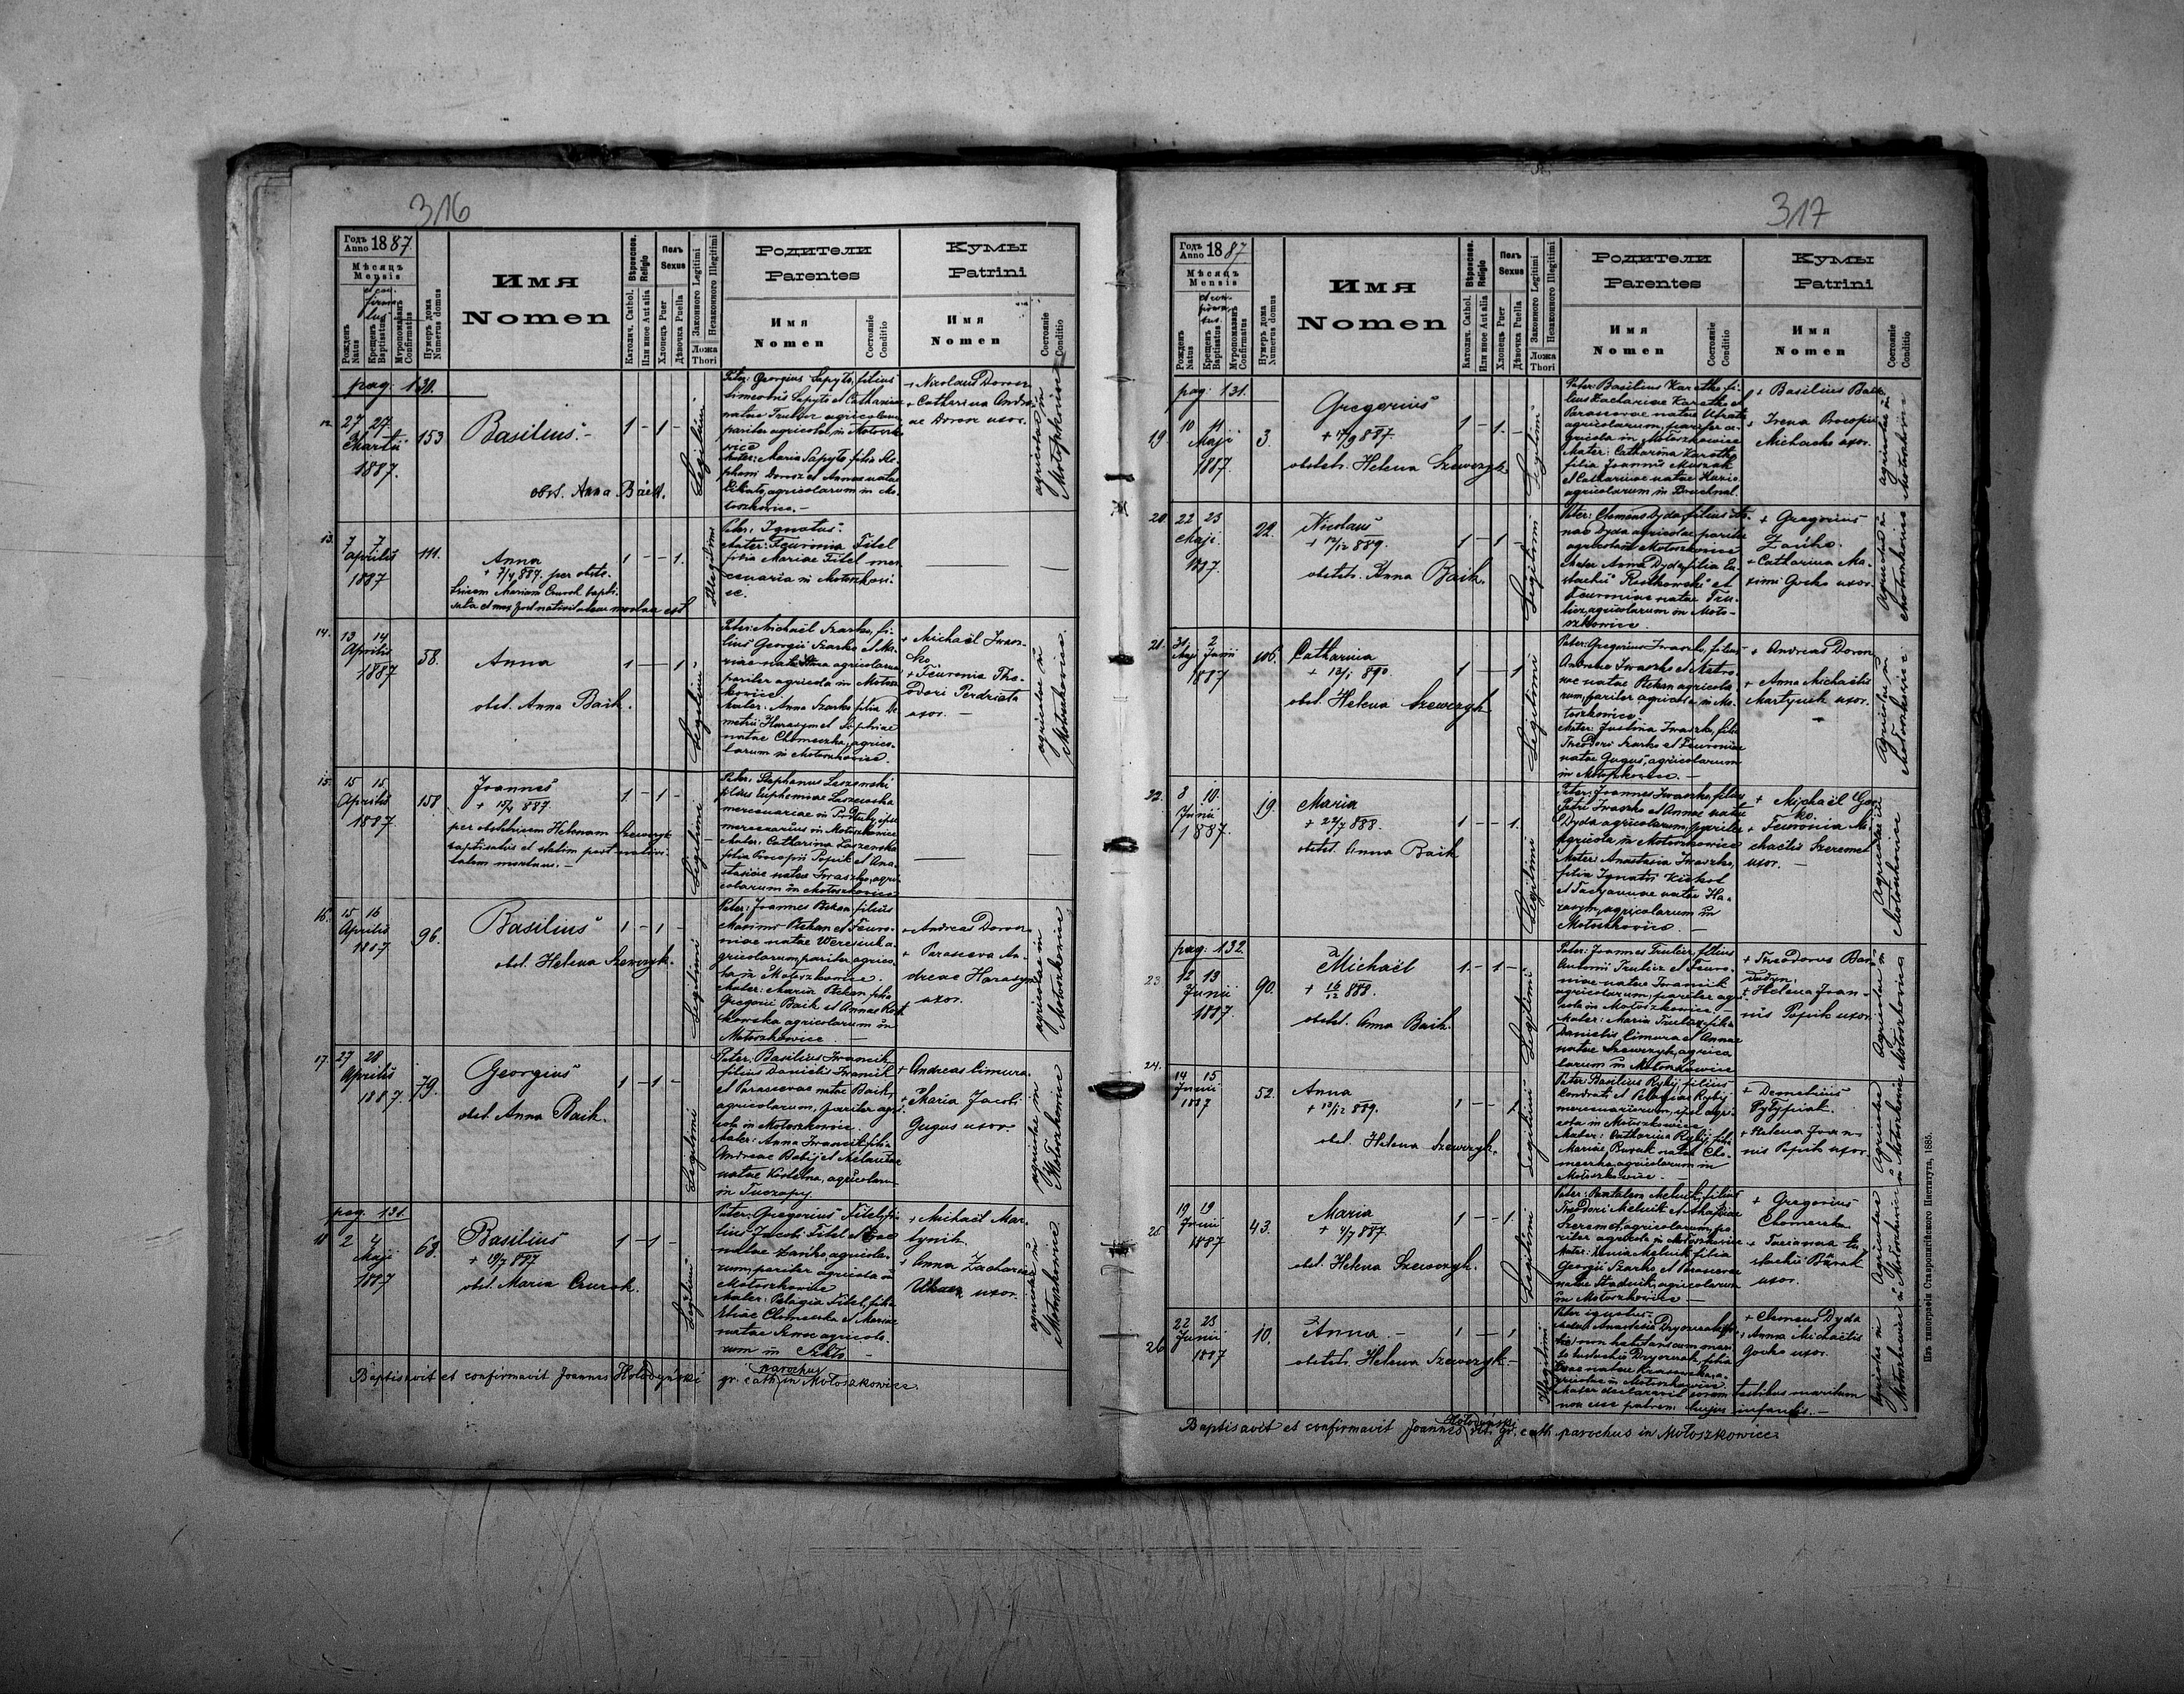 316
Годъ Anno 1887.
Мѣсяцъ
Mensis
et confirmatus
Рожденъ Natus
Крещенъ Baptisatus
Муропомазанъ Confirmatus
Нумеръ дома Numerus domus
Имя
Nomen
Вѣроиспов. Religio
Католич. Cathol.
Или иное Aut alia
Полъ Sexus
Хлопецъ Puer
Дѣвочка Puella
Законного Legitimi
Незаконного Illegitimi
Ложа Thori
Родители
Parentes
Имя Nomen
Состоянie Conditio
Кумы
Patrini
Имя Nomen
Состоянie Conditio
pag. 130.
12. 27 27 Martii 1887. 153 Basilius.- 1 - 1 - Legitimi
obst. Anna Baik.
Pater: Georgius Sapyto, filius
Simeonis Sapyto et Catharinae
natae Trulicz agricolarum,
pariter agricola, in Motoszko-
wice
Mater: Maria Sapyto filia Ste-
phani Dorosz et Annae natae
agricolarum in Mo-
toszkowice.-
+ Nicolaus Dorosz
+ Catharina Andre-
ae Dorosz uxor.
agricolae in Motoszkowice
13. 7 7 Aprilis 1887 111. Anna 1 - - 1. Illegitimi
+ 7/4 887. per obste-
tricem Mariam Czurok bapti-
sata et mox post nativitatem mortua est
Pater: Ignotus.
Mater: Feuronia Fitel
filia Mariae Fitel mer-
cenaria in Motoszkowi-
ce.
14. 13 14 Aprilis 1887 58. Anna 1 - - 1 Legitimi
obst. Anna Baik.
Pater: Michaël Szarko, fi-
lius Georgii Szarko et Ma-
riae natae agricolarum,
pariter agricola in Motosz-
kowice.
Mater: Anna Szarko filia De-
metrii Harasym et Sophiae
natae Chomeczka, agrico-
larum in Motoszkowice.
+ Michaël Iwasz-
ko
+ Feuronia The-
odori Perdziata
uxor. -
agricolae in Motoszkowice.
15. 15 15 Aprilis 1887 158 Joannes 1 - 1 - Legitimi
+ 15/4 887.
per obstetricem Helenam Szewczyk
baptisatus et statim post nativi-
tatem mortuus.-
Pater: Stephanus Laszewski
filius Euphemiae Laszewska
mercenariae in ipse
mercenarius in Motoszkowice
Mater: Catharina Laszewska
filia Procopii Popik et Ana-
stasiae natae Iwaszko, agri-
colarum in Motoszkowice
16. 15 16 Aprilis 1887 96. Basilius 1 - 1 - Legitimi
obst. Helena Szewczyk.
Pater: Joannes Pekan filius
Maximi Pekan et Feuro-
niae natae Weresiuk a-
gricolarum, pariter agrico-
la in Motoszkowice.
Mater: Maria Pekan filia
Gregorii Baik et Annae
agricolarum in
Motoszkowice -
+ Andreas Dorosz
+ Parasceva An-
dreae Harasym
uxor.
agricolae in Motoszkowice
17. 27 28 Aprilis 1887 79. Georgius 1 - 1 - Legitimi
obst. Anna Baik.
Pater: Basilius Iwancik
filius Danielis Iwancik
et Parascevae natae Baik,
agricolarum, pariter agri-
cola in Motoszkowice.
Mater: Anna Iwancik filia
Andreae Babij et Melaniae
natae agricolarum
in Tuczapy
+ Andreas Cimura.
+ Maria Jacobi
Gugus uxor.
agricolae in Motoszkowice
pag. 131.
18 2 4 Maji 1887 68. Basilius 1 - 1 - Legitimi
+ 18/7 887
obst. Maria Czurok.
Pater: Gregorius Fitel fi-
lius Jacobi Fitel et Evae
natae Zańko, agricola-
rum, pariter agricola in
Motoszkowice
Mater: Pelagia Fitel, filia
Eliae Chomeczka et Mariae
natae agricola-
rum in Szkło -
+ Michaël Mar-
tynik.
+ Anna Zachariae
uxor.
agricolae in Motoszkowice
Baptisavit et confirmavit Joannes Hołodyński gr. cath. parochus in Motoszkowice.
317
Годъ Anno 1887
Мѣсяцъ
Mensis
et confirmatus.
Рожденъ Natus
Крещенъ Baptisatus
Муропомазанъ Confirmatus
Нумеръ дома Numerus domus
Имя
Nomen
Вѣроиспов. Religio
Католич. Cathol.
Или иное Aut alia
Полъ Sexus
Хлопецъ Puer
Дѣвочка Puella
Законного Legitimi
Незаконного Illegitimi
Ложа Thori
Родители
Parentes
Имя Nomen
Состоянie Conditio
Кумы
Patrini
Имя Nomen
Состоянie Conditio
pag. 131.
19. 10 11 Maji 1887 3. Gregorius 1 - 1. - Legitimi
+ 17/9 887.
obstetr. Helena Szewczyk
Pater: Basilius Karatko fi-
lius Zachariae Karatko et
Parascevae natae
agricolarum, pariter a-
gricola in Motoszkowice
Mater: Catharina Karatko
filia Joannis
et Catharinae natae
agricolarum in Bruchnal.
+ Basilius Baik.
+ Irena Procopii
uxor.
agricolae in Motoszkowice
20. 22 23 Maji 1887. 22. Nicolaus 1 - 1 - Legitimi
+ 12/12 889.
obstetr. Anna Baik.
Pater: Clemens Dyda, filius
Dyda agricolae pariter
agricola in Motoszkowice
Mater: Anna Dyda, filia Eu-
stachii et
Feuroniae natae Tru-
licz, agricolarum in Moto-
szkowice.
+ Gregorius
Zańko.
+ Catharina Ma-
ximi Gocko uxor.
Agricolae in Motoszkowice
21. 31 Maji 2 Junii 1887 106. Catharina 1 - - 1 Legitimi
+ 12/1 890.
obst. Helena Szewczyk
Pater: Gregorius Iwaszko, filius
Andreae Iwaszko et
natae Pekan agricola-
rum, pariter agricola in Mo-
toszkowice.
Mater: Justina Iwaszko, filia
Theodori Szarko et Feuroniae
natae Gugus, agricolarum
in Motoszkowice. -
+ Andreas Dorosz
+ Anna Michaëlis
Martynik uxor.
Agricolae in Motoszkowice
22. 8 10 Junii 1887. 19. Maria 1 - - 1. Legitimi
+ 22/7 888.
obstet. Anna Baik
Pater: Joannes Iwaszko, filius
Petri Iwaszko et Annae natae
Dyda agricolarum, pariter
agricola in Motoszkowice
Mater: Anastasia Iwaszko,
filia Ignatii
et Tacyannae natae Ha-
rasym, agricolarum in
Motoszkowice. -
+ Michaël Goc-
ko.
+ Feuronia Mi-
chaëlis Szeremet
uxor. -
Agricolae in Motoszkowice
pag. 132.
23. 12 13 Junii 1887. 90. Michaël 1 - 1 - Legitimi
+ 16/12 888.
obstet. Anna Baik.
Pater: Joannes Trulicz, filius
Antonii Trulicz et Feuro-
niae natae Iwancik
agricolarum, pariter agri-
cola in Motoszkowice -
Mater: Maria Trulicz filia
Danielis Cimura et Annae
natae Szewczyk, agrico-
larum in Motoszkowice
+ Theodorus
+ Helena Joan-
nis Popik uxor.
Agricolae in Motoszkowice
24. 14 15 Junii 1887 52. Anna 1 - - 1 Legitimi
+ 12/12 889.
obst. Helena Szewczyk.
Pater Basilius Rybij, filius
Condrati et Pelagiae Rybij
mercenariorum, ipse agri-
cola in Motoszkowice
Mater: Catharina Rybij, filia
Mariae Burak natae Cho-
meczka, agricolarum in
Motoszkowice.
+ Demetrius
Pytypiak.
+ Helena Joan-
nis Popik uxor.
Agricolae in Motoszkowice
25 19 19 Junii 1887 43. Maria 1 - - 1. Legitimi
+ 4/7 887
obst. Helena Szewczyk.
Pater: Pantaleon Melnik, filius
Theodori Melnik et
Szeremet, agricolarum, pa-
riter agricola in Motoszkowice
Mater: Xenia Melnik filia
Georgii Szarko, et Parascevae
natae Stadnik, agricolarum
in Motoszkowice -
+ Gregorius
Chomeczka
+ Tacianna Eu-
stachii Burak
uxor.
Agricolae in Motoszkowice
26. 22 23 Junii 1887 10. Anna. - 1 - - 1 Illegitimi
obstetr. Helena Szewczyk -
Pater ignotus.
Mater Anastasia
non habitans cum mari-
to Eustachio filia
natae a-
gricolae in Motoszkowice
Mater declaravit coram testibus maritum
non esse patrem hujus infantis. -
+ Clemens Dyda
+ Anna Michaëlis
Gocko uxor.
Agricolae in Motoszkowice
Baptisavit et confirmavit Joannes Hołodyński gr. cath. parochus in Motoszkowice
Изъ типографiи Ставропигiйского Института, 1885.